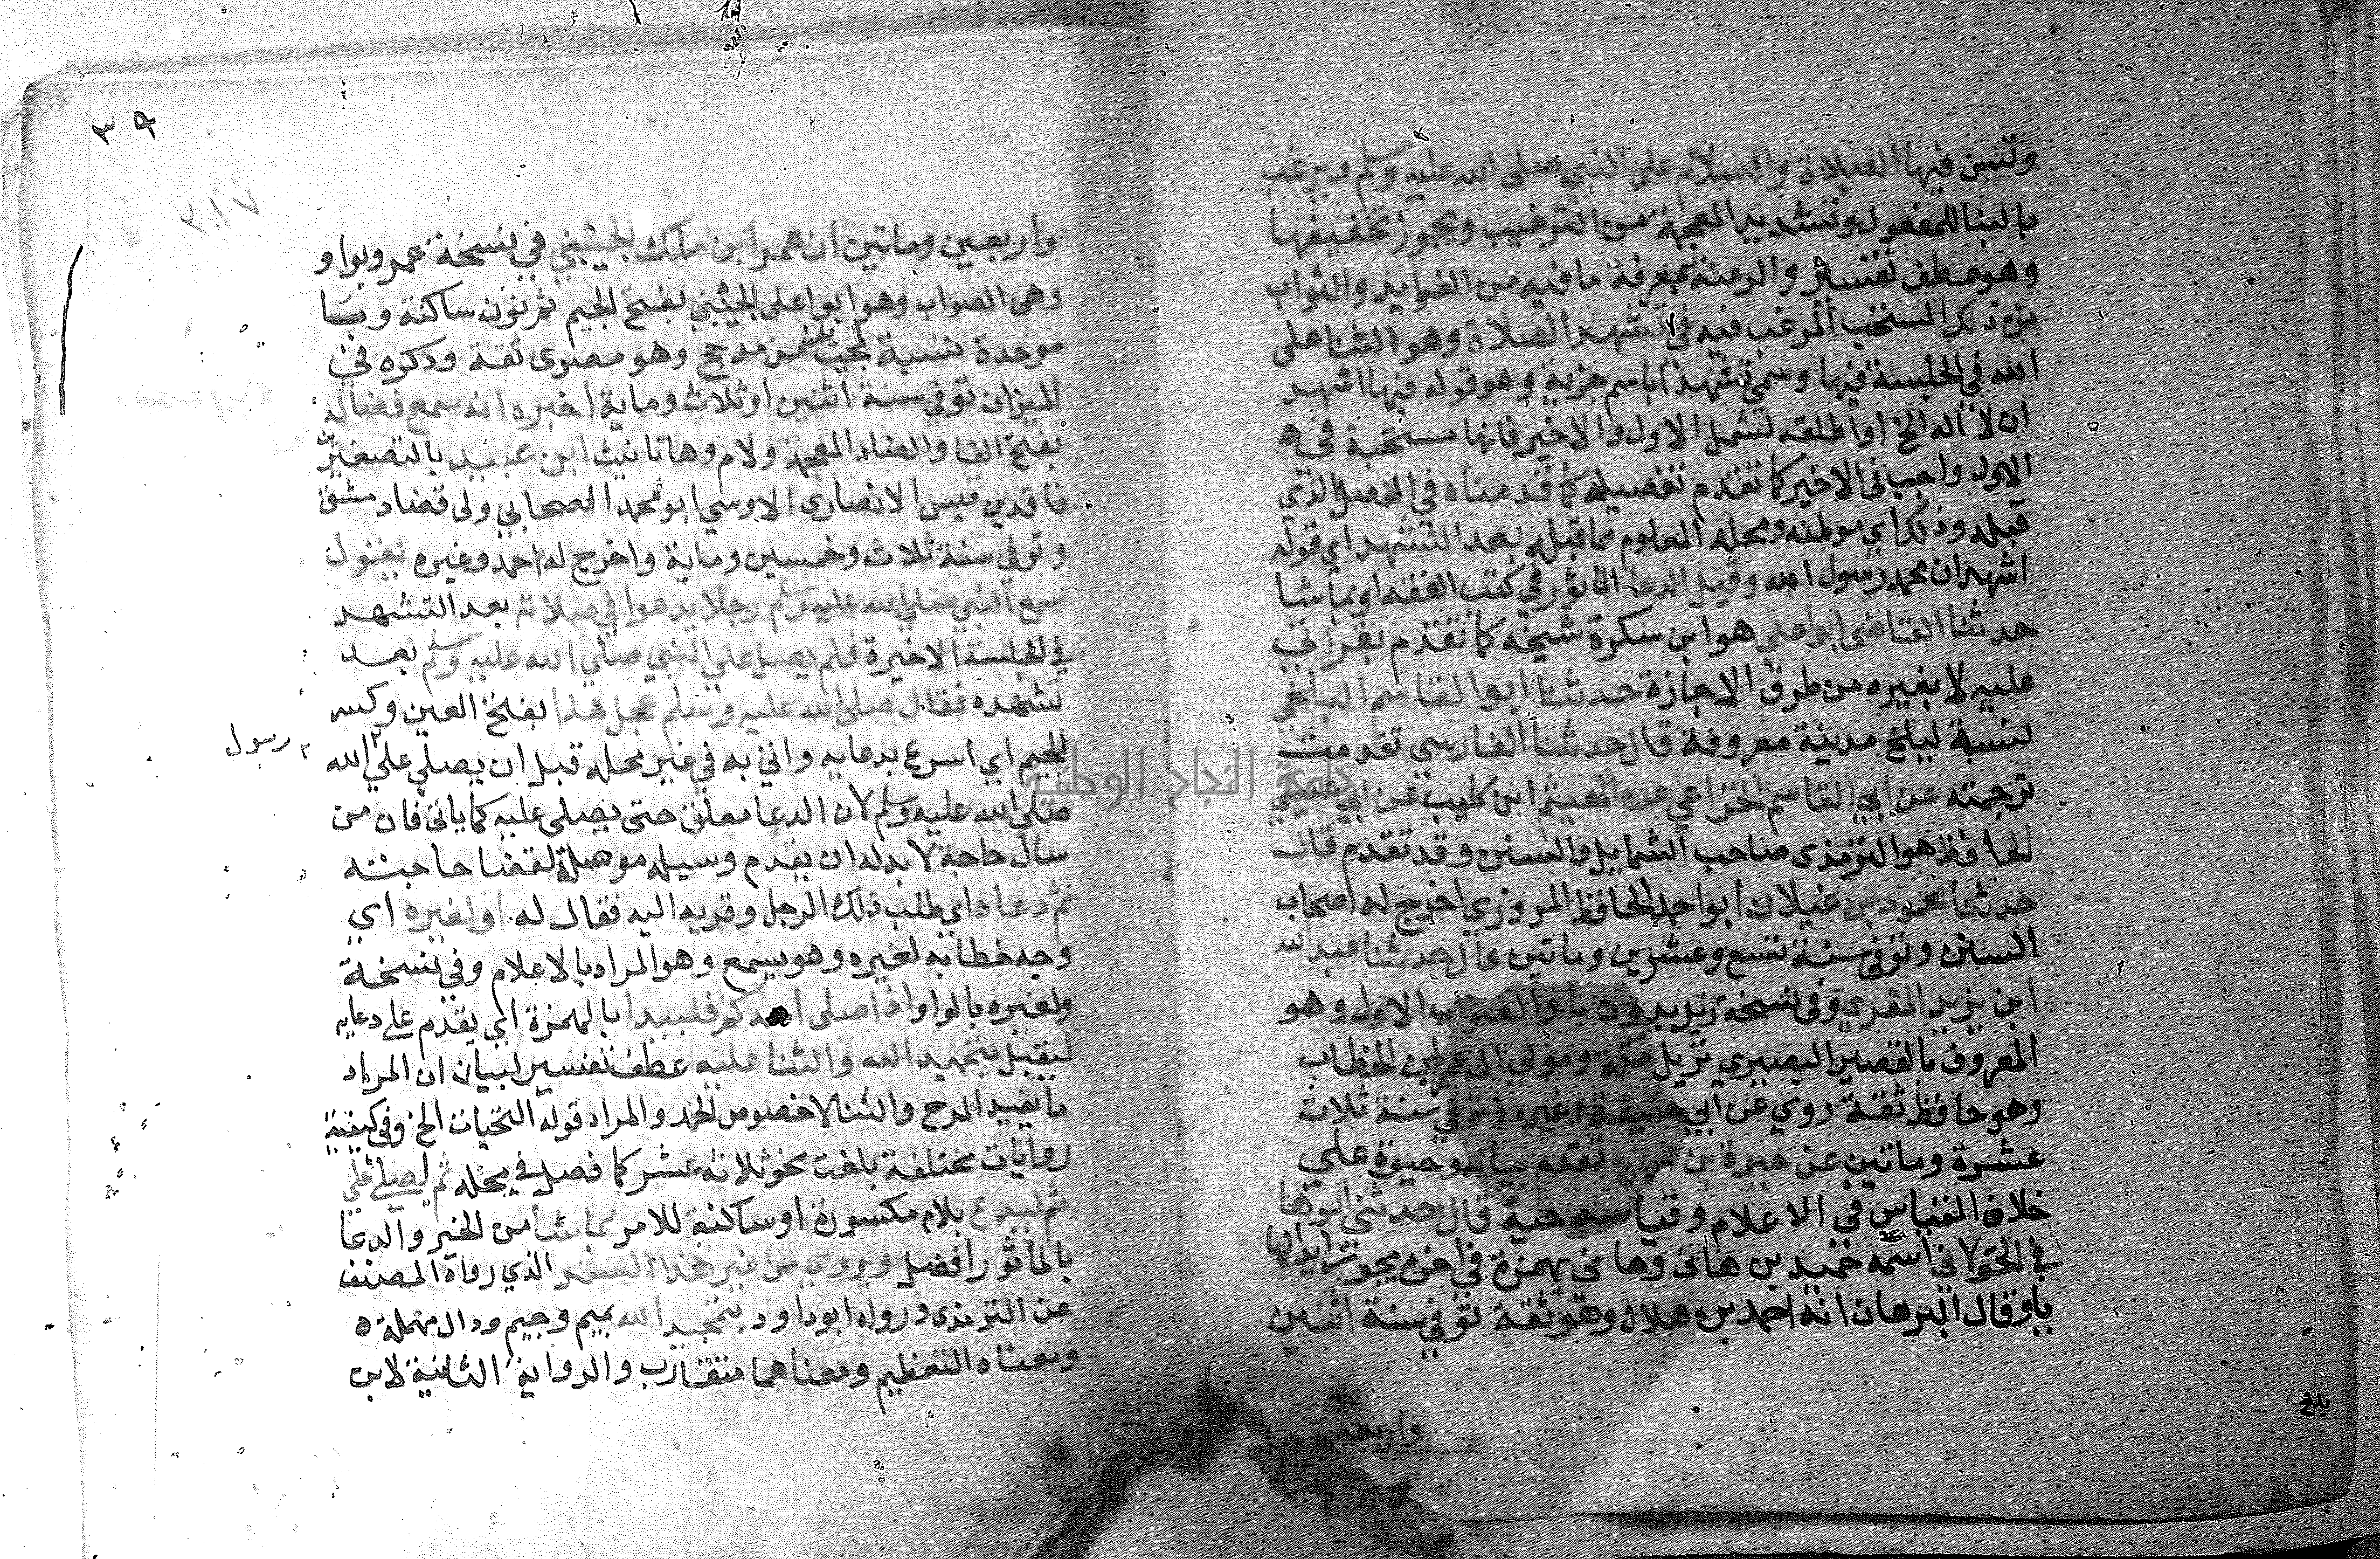 وتسن فيها الصلاة والسلام على النبي صلى الله عليه وسلم ويرغب
بالبنا للمفعول وتشديد المعجمة من الترغيب ويجوز تخفيفها
وهو عطف تفسير والرغبة بمعرفة ما فيه من الفوايد والثواب
من ذلك المستحب المرغب فيه في تشهد الصلاة وهو الثنا على
الله في الجلسة فيها وسمي تشهدا باسم جزيه وهو قوله فيها اشهد
ان لا اله الخ اواطلقه لتشمل الاول والاخير فانها مستحبة في
الاول واجب في الاخير كما تقدم تفصيله كما قدمناه في الفصل الذي
قبله وذلك اي موطنه ومحله المعلوم مما قبله بعد التشهد اي قوله
اشهد ان محمد رسول الله وقبل الدعا الماثور في كتب الفقه اوبما شا
حدثنا القاضى ابوا على هو ابن سكرة شيخه كما تقدم بقراتي
عليه لا بغيره من طرق الاجازة حدثنا ابوا القاسم البلخي
نسبة لبلخ مدينة معروفة قال حدثنا الفارسي تقدمت
ترجمته عن ابي القاسم الخزاعي عن الهيثم ابن كليب عن ابي عيسى
الحافظ هو الترمذى صاحب الشمايل والسنن وقد تقدم قال
حدثنا محمود بن غيلان ابوا احمد الحافظ المروزي اخرج له اصحاب
السنن وتوفى سنة تسع وعشرين وماتين قال حدثنا عبد الله
ابن يزيد المقري وفى نسخة زيد بدون يا والصواب الاول وهو
المعروف بالقصير البصيري نزيل مكة ومولي ال عمر ابن الخطاب
وهو حافظ ثقة روي عن ابي حنيفة وغيره وتوفي سنة ثلاث
عشرة وماتين عن حيوة بن شريح تقدم بيانه وحيوة علي
خلاف القياس في الاعلام وقياسه حية قال حدثني ابوا ها
في الخولاني اسمه حميد بن هانى وهانى بهمزة في اخره يجوز ابدالها
يا وقال البرهان انه احمد بن هلال وهو ثقة توفي سنة اثنين
واربعين
بلغ
٣٩
واربعين وماتين ان عمر ابن ملك الجنبي في نسخة عمرو بواو
وهى الصواب وهو ابوا على الجنبي بفتح الجيم ثم نون ساكنة وبا
موحدة نسبة لجنب من مدحج وهو مصرى ثقة وذكره في
الميزان توفي سنة اثنين او ثلاث وماية اخبره انه سمع فضالة
بفتح الفا والضاد المعجمة ولام وها تانيث ابن عبيد بالتصغير
ناقد بن قيس الانصارى الاوسي ابو محمد الصحابي ولى قضا دمشق
وتوفي سنة ثلاث وخمسين وماية واخرج له احمد وغيره يقول
سمع النبي صلى الله عليه وسلم رجلا يدعوا في صلاته بعد التشهد
في الجلسة الاخيرة فلم يصل على النبي صلى الله عليه وسلم بعد
تشهده فقال صلى الله عليه وسلم عجل هذا بفتح العين وكسر
الجيم اي اسرع بدعايه واتي به في غير محله قبل ان يصلي على الله
رسول
صلى الله عليه وسلم لان الدعا معلق حتى يصلى عليه كما ياتى فان من
سال حاجة لا بد له ان يقدم وسيلة موصلة لقضا حاجته
ثم دعاه اي طلب ذلك الرجل وقربه اليه فقال له او لغيره اي
وجه خطابه لغيره وهو يسمع وهو المراد بالاعلام وفي نسخة
ولغيره بالواو اذا صلى احدكم فليبدا بالهمزة اي يقدم على دعايه
ليقبل بتحميد الله والثنا عليه عطف تفسير لبيان ان المراد
ما يفيد المدح والثنا لا خصوص الحمد والمراد قوله التحيات الخ وفى كيفيته
روايات مختلفة بلغت نحو ثلاثة عشر كما فصل في محله ثم ليصل على
ثم ليدع بلام مكسورة او ساكنة للامر بما شا من الخير والدعا
بالماثور افضل ويروي من غير هذا السند الذي رواه المصنف
عن الترمذى ورواه ابو داود بتمجيد الله بميم وجيم ودال مهملة
ومعناه التعظيم ومعناهما متقارب والرواية الثانية لابن
جامعة النجاح الوطنية